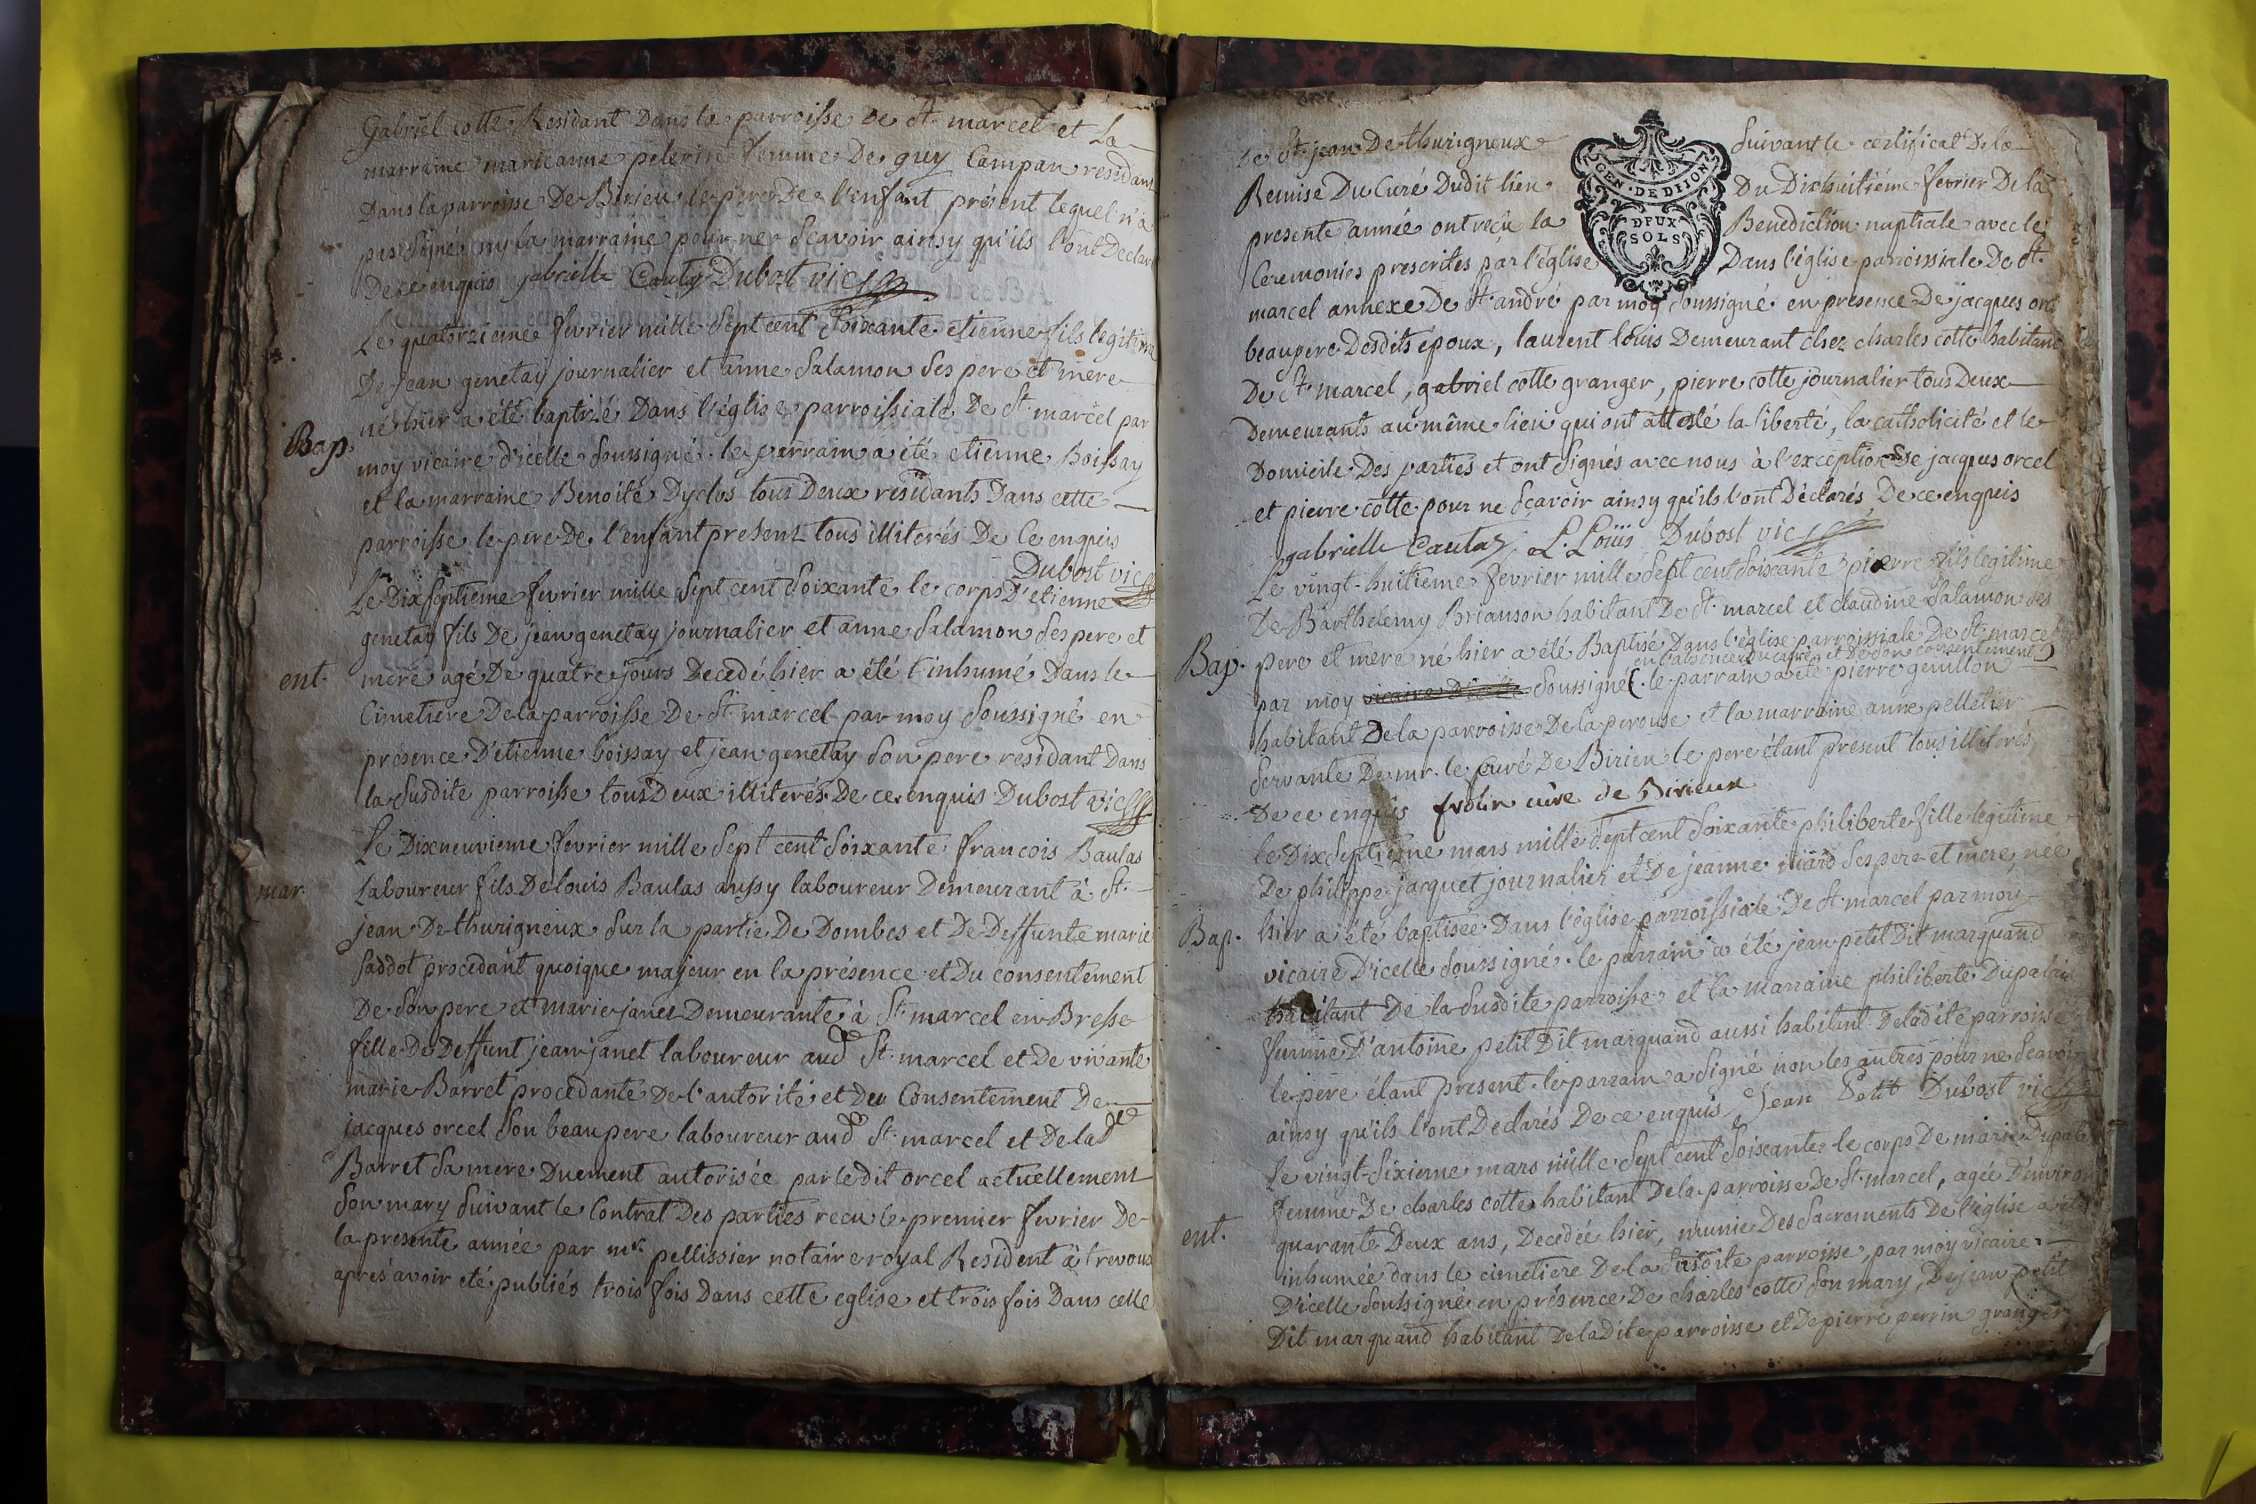 Gabriel cotte Residant Dans la parroisse de St. marcel et La
marraine marieanne pelerin femme De guy Campan residant
Dans la parroisse De Birieu le pere De l'enfant présent lequel n'a
pas signé ny la marraine pour ne sçavoir ainsy qu'ils l'ont Declaré
De ce enquis gabrielle Cautaz Dubost vic
Le quatorzieme fevrier mille sept cent soixante etienne fils legitime
De jean genetay journalier et anne Salamon ses pere et mere
né hier a été baptizé Dans l'église parroissiale De St. marcel par
Bap. moy vicaire d'icelle soussigné. le parrain a été etienne Boissay
et la marraine Benoite Dyclos tous Deux residants Dans cette
parroisse le pere De l'enfant present tous illiterés De ce enquis
Dubost vic
Le Dixseptieme fevrier mille sept cent soixante le corps D'etienne
genetay fils De jean genetay journalier et anne Salamon ses pere et
ent. mere agé De quatre jours Decedé hier a été inhumé Dans le
Cimetiere De la parroisse De St. marcel par moy soussigné en
présence D'etienne boissay et jean genetay son pere residant Dans
la susdite parroisse tous Deux illiterés De ce enquis Dubost vic
Le Dixneuvieme fevrier mille sept cent soixante francois Baulas
mar. Laboureur fils De louis Baulas aussy laboureur Demeurant à St.
jean De thurigneux sur la partie De Dombes et De Deffunte marie
saddot procedant quoique majeur en la présence et Du consentement
De son pere et marie janet Demeurante à St. marcel en Bresse
fille De Deffunt jean janet laboureur aud St. marcel et De vivante
marie Barret procedante De l'autorité et Du Consentement De
jacques orcel son beaupere laboureur aud St. marcel et De lad
Barret sa mere Duement autorisée par le dit orcel actuellement
son mary suivant le Contrat Des parties recu le premier fevrier De
la presente année par mr. pellissier notaire royal Resident à trevoux
apres avoir eté publiés trois fois Dans cette eglise et trois fois Dans celle
De St. jean De thurigneux suivant le certificat De la
Remise Du Curé Dudit lieu Du Dixhuitiéme fevrier De la
presente année ont reçu la Benediction nuptiale avec les
Ceremonies prescrites par l'église Dans l'église parroissiale De St.
GEN. DE DIJON
DEUX
SOLS
marcel annexe De St. andré par moy soussigné en presence De jacques orcel
beaupere Desdits époux, laurent louis Demeurant chez charles cotte habitant
De St. marcel, gabriel cotte granger, pierre cotte journalier tous Deux
Demeurants au même lieu qui ont attesté la liberté, la catholicité et le
Domicile Des parties et ont signés avec nous à l'exception De jacques orcel
et pierre cotte pour ne sçavoir ainsy qu'ils l'ont Déclarés De ce enquis
gabrielle Cautaz L. Loüis Dubost vic
Le vingt-huitieme fevrier mille sept cent soixante pierre fils legitime
De Barthelemy Brianson habitant De St. marcel et claudine Salamon ses
Bap. pere et mere né hier a été Baptisé Dans l'église parroissiale De St. marcel
en l'absence du curé et De son consentement
par moy vicaire D'icelle soussigné. le parrain a été pierre genillon
habitant De la parroisse De la perouse et la marraine anne pelletier
servante De mr. le curé De Birieu le pere étant present tous illiterés
De ce enquis frolin curé de Birieux
le Dixseptieme mars mille sept cent soixante philiberte fille legitime
De philippe jacquet journalier et De jeanne ses pere et mere, née
Bap. hier a été baptisée Dans l'église parroissiale De St. marcel par moy
vicaire D'icelle soussigné. le parrain a été jean petit Dit marquand
habitant De la susdite parroisse et la marraine philiberte Dupalud
femme D'antoine petit Dit marquand aussi habitant De ladite parroisse
le pere étant present. le parrain a signé non les autres pour ne sçavoir
ainsy qu'ils l'ont Declarés De ce enquis Jean Petit Dubost vic
Le vingt-sixieme mars mille sept cent soixante le corps De marie Dupalud
femme De charles cotte habitant De la parroisse De St. marcel, agée D'environ
ent. quarante Deux ans, Decedée hier, munie Des Sacrements De l'église a été
inhumée dans le cimetiere De la susdite parroisse, par moy vicaire
D'icelle soussigné en présence De charles cotte son mary, De jean petit
Dit marquand habitant De la Dite parroisse et De pierre perrin granger